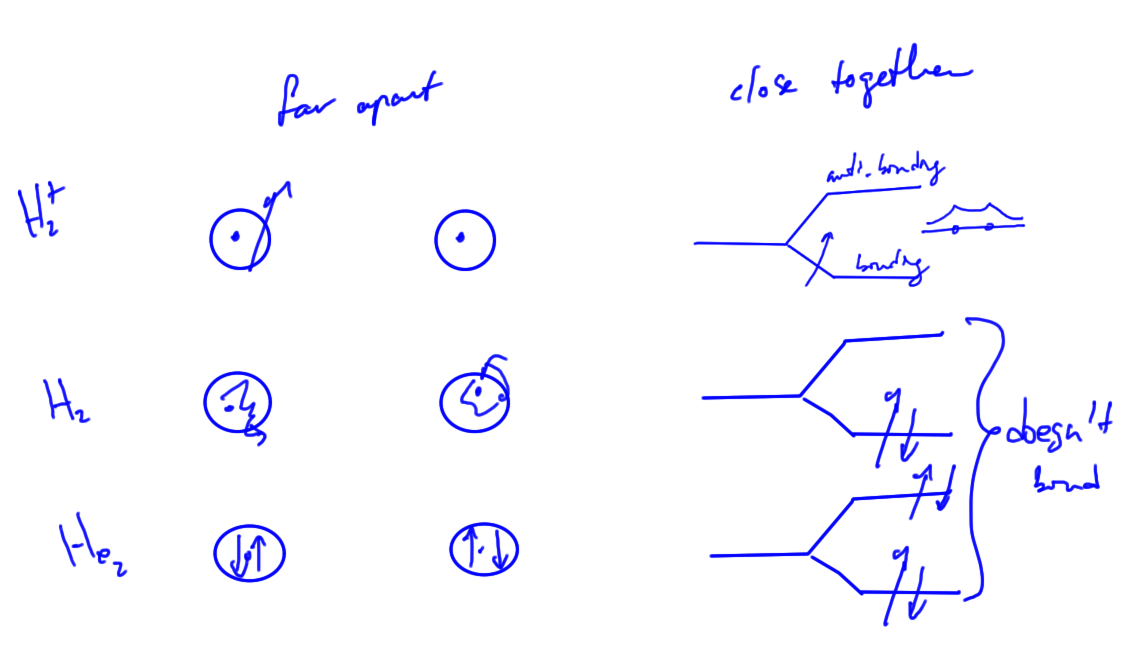 far apart
close together
H₂⁺
anti-bonding
bonding
H₂
doesn't
bond
He₂